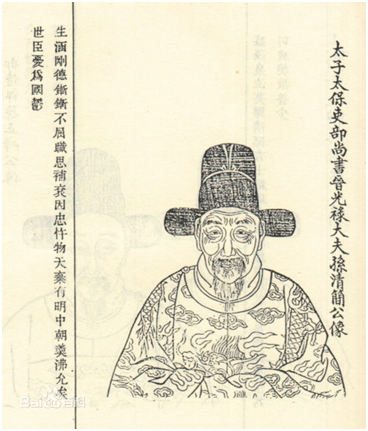 太子太保吏部尚書晉光祿大夫孫清簡公像
生涵剛德不屈職思補衮因忠忤物天棄有明中朝羹沸允矣
世臣憂爲國鬱
Bai百科